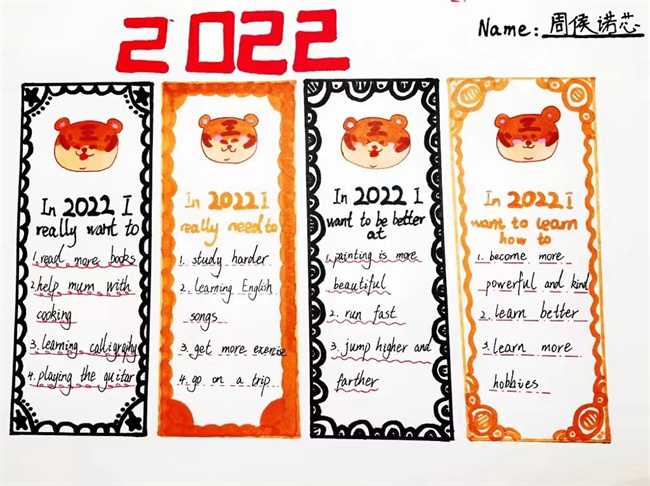 2022
Name: 周侯诺芯
In 2022 I
really want to
1. read more books
2. help mum with
cooking
3. learning calligraphy
4. playing the guitar
In 2022 I
really need to
1. study harder
2. learning English
songs
3. get more exercise
4. go on a trip
In 2022 I
want to be better
at
1. painting is more
beautiful
2. run fast
3. jump higher and
farther
In 2022 I
want to learn
how to
1. become more
powerful and kind
2. learn better
3. learn more
hobbies